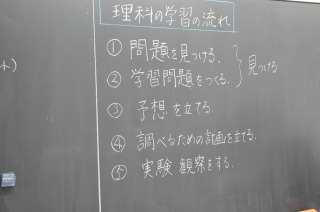 理科の学習の流れ
① 問題を見つける.
② 学習問題をつくる.
見つける
③ 予想を立てる.
④ 調べるための計画を立てる.
⑤ 実験 観察をする.
ト)